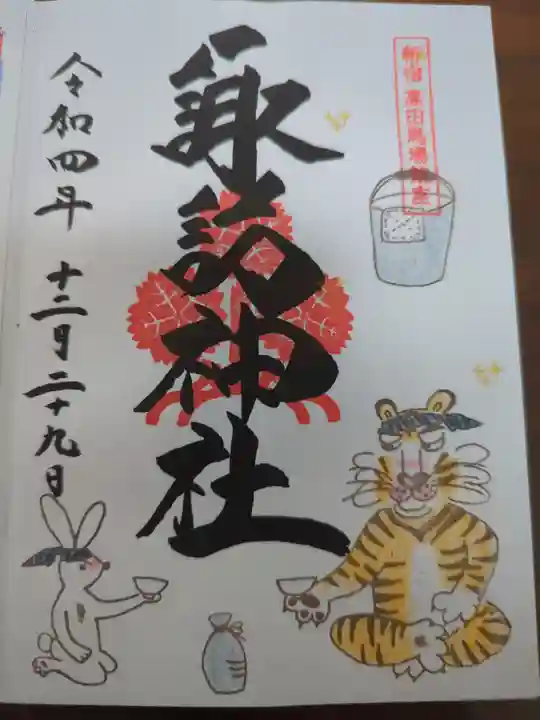 新宿 高田馬場鎮座
諏訪神社
令和四年 十二月二十九日